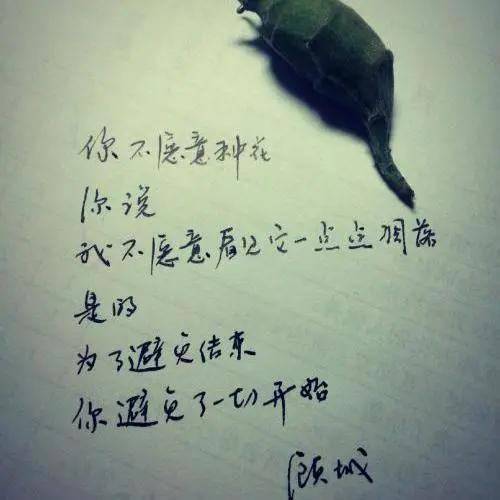 你不愿意种花
你说
我不愿意看见它一点点凋落
是的
为了避免结束
你避免了一切开始
顾城